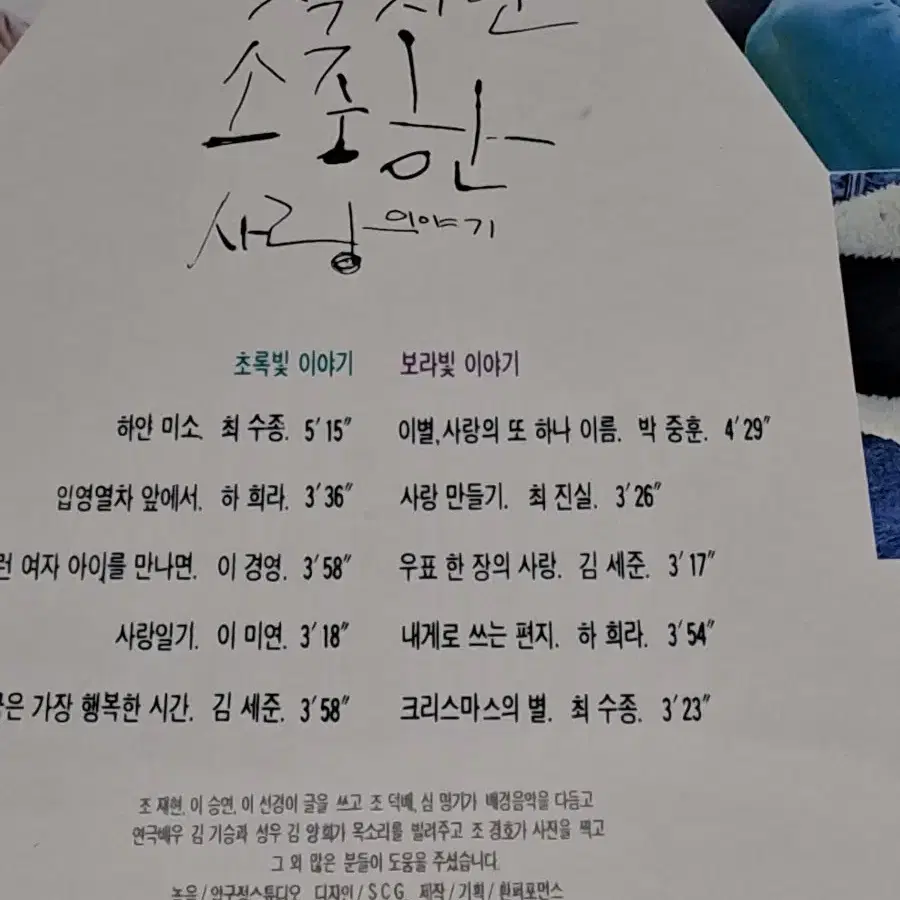 소중한
사랑 이야기
초록빛 이야기
하얀 미소. 최 수종. 5′15″
입영열차 앞에서. 하 희라. 3′36″
런 여자 아이를 만나면. 이 경영. 3′58″
사랑일기. 이 미연. 3′18″
은 가장 행복한 시간. 김 세준. 3′58″
보라빛 이야기
이별,사랑의 또 하나 이름. 박 중훈. 4′29″
사랑 만들기. 최 진실. 3′26″
우표 한 장의 사랑. 김 세준. 3′17″
내게로 쓰는 편지. 하 희라. 3′54″
크리스마스의 별. 최 수종. 3′23″
조 재현, 이 승연, 이 선경이 글을 쓰고 조 덕배, 심 명기가 배경음악을 다듬고
연극배우 김 기승과 성우 김 양희가 목소리를 빌려주고 조 경호가 사진을 찍고
그 외 많은 분들이 도움을 주셨습니다.
녹음/압구정스튜디오 디자인/SCG 제작/기획/환퍼포먼스